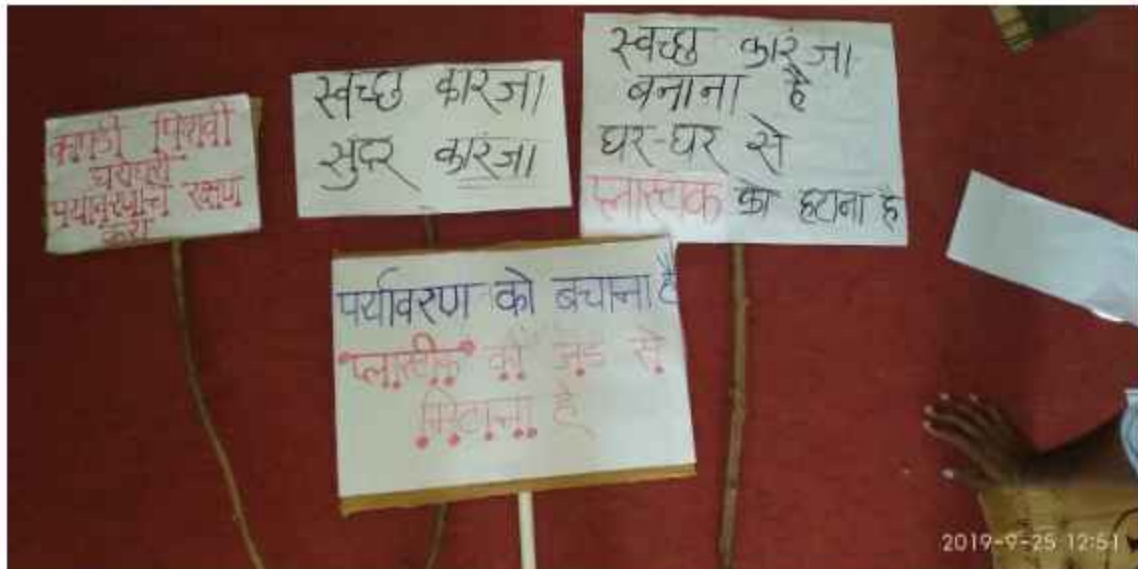 कापडी पिशवी
वापरा
पर्यावरणाचे रक्षण
करा
स्वच्छ कारंजा
सुंदर कारंजा
स्वच्छ कारंजा
बनाना है
घर-घर से
प्लास्टिक को हटाना है
पर्यावरण को बचाना है
"प्लास्टीक" को जड से
मिटाना है
2019-9-25 12:51